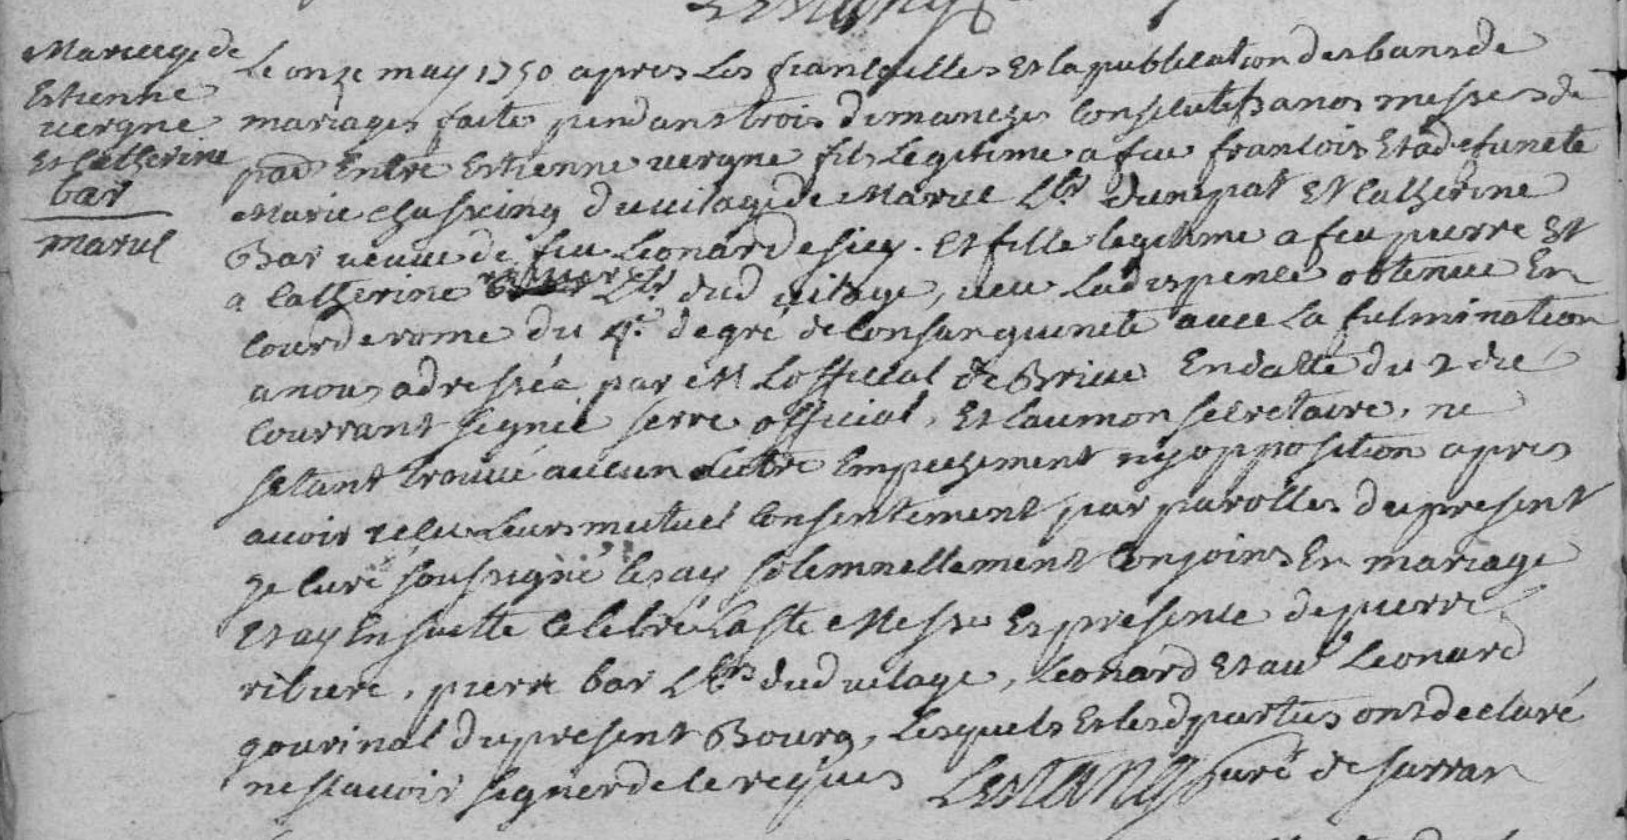 Mariage de
Estienne
vergne
Et Catherine
bar
maruc
Le onze may 1750 apres Les fiansailles Et la publication des bans de
mariages faite pendans trois dimanches Consecutifs a nos messes de
parr Entre Estienne vergne fils Legitime a feu francois Et a defuncte
Marie chassaing du vilage de Maruc Lbr dune pat Et Catherine
Bar veuve de feu Leonard esiey. Et fille legitime a feu pierre Et
a Catherine Lbr dud vilage, veu La dispence obtenue En
Cour de rome du 4e degré de Consanguineté avec La fulmination
a nous adressée par Mr Lofficial de Brive En datte du 2 du
Courrant signée serre official, Et Laumon secretaire, ne
setant trouvé aucun autre Empechement ny opposition apres
avoir reçu Leurs mutuel Consentement par parolles du present
Je Curé soussigné les ay solemnellement Conjoins En mariage
Et ay Ensuitte Celebré La ste Messe En presence de pierre
ribiere, pierre bar Lbrs dud vilage, Leonard Et aut Leonard
gourinal du present Bourg, Lesquels Et lesd parties ont declaré
ne scavoir signer de ce requis Lestang Curé de sarran